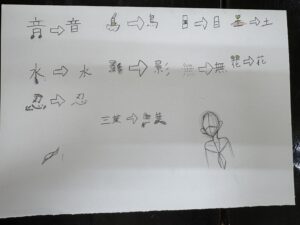 音⇨音 鳥⇨鳥 目⇨目 土⇨土
水⇨水 影⇨影 無⇨無 花⇨花
忍⇨忍 三葉⇨